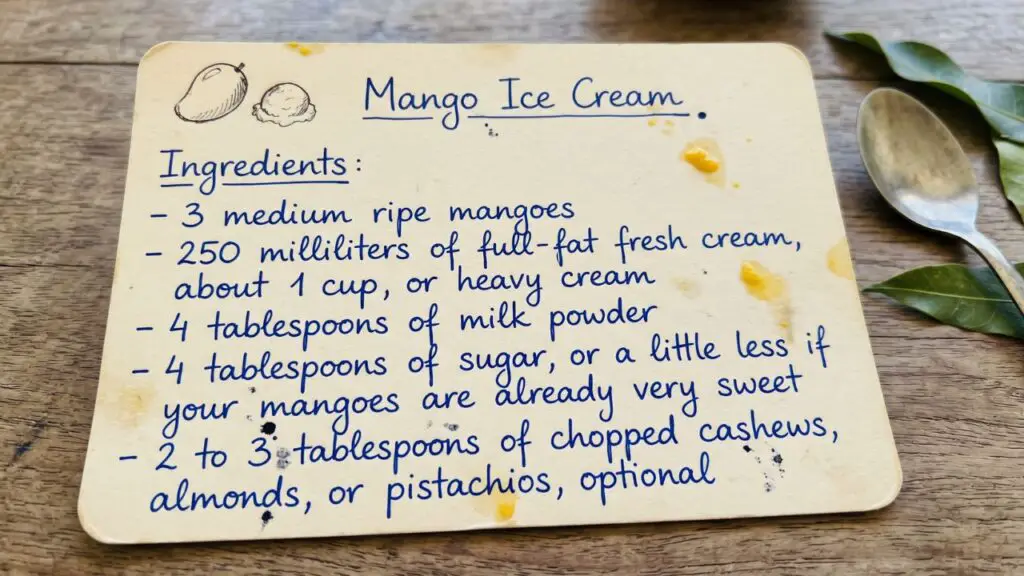 Mango Ice Cream.
Ingredients:
- 3 medium ripe mangoes
- 250 milliliters of full-fat fresh cream,
about 1 cup, or heavy cream
- 4 tablespoons of milk powder
- 4 tablespoons of sugar, or a little less if
your mangoes are already very sweet
- 2 to 3 tablespoons of chopped cashews,
almonds, or pistachios, optional